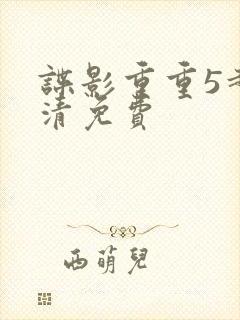 諜影重重5
清免費
西萌兒